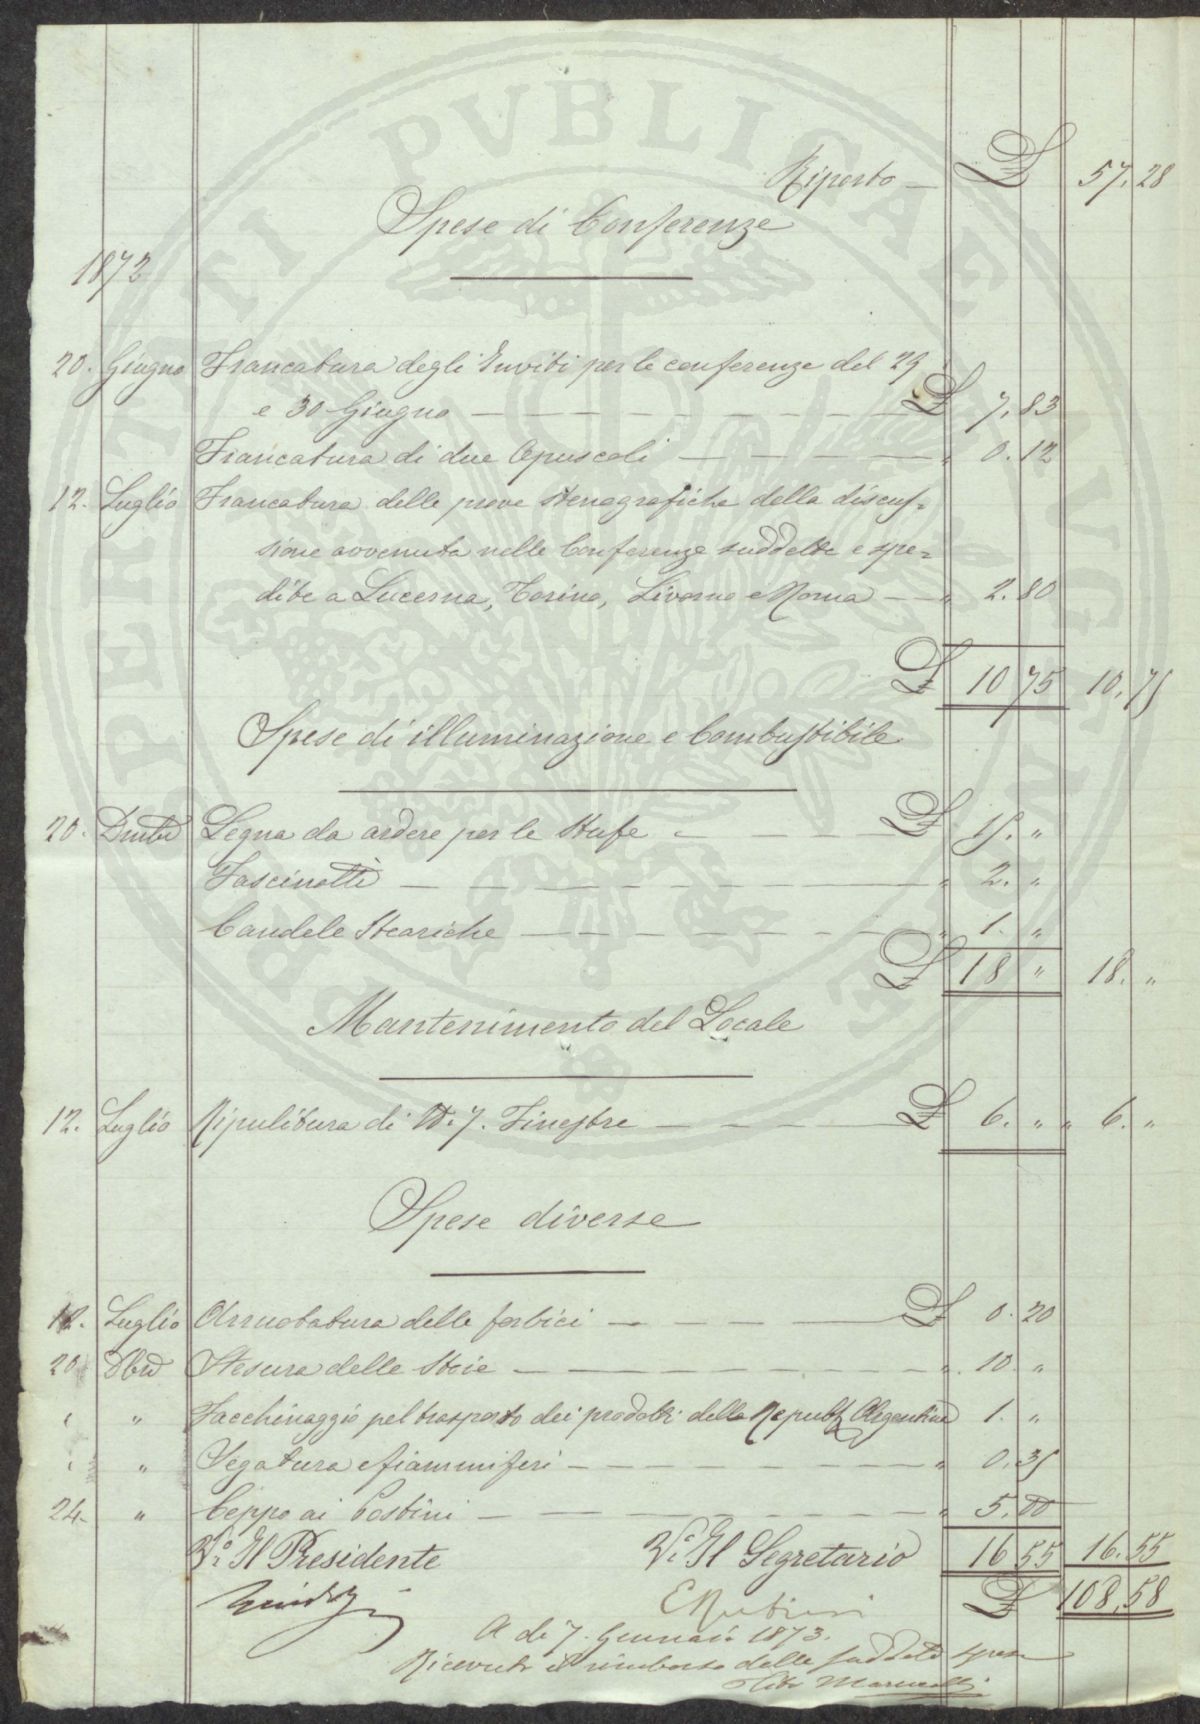 PROSPERITATI PVBLICAE AVGENDAE
Riporto — £ 57,28
Spese di Conferenze
1872
20. Giugno Francatura degli Inviti per le conferenze del 29
e 30 Giugno — £ 7,83
Francatura di due Opuscoli — " 0.12
12. Luglio Francatura delle prove stenografiche della discus=
sione avvenuta nelle Conferenze suddette e spe=
dite a Lucerna, Torino, Livorno e Roma — " 2.80
£ 10 75 10,75
Spese di illuminazione e Combustibile
20. Dmbre Legna da ardere per le Stufe — £ 15. "
Fascinotti — " 2. "
Candele Steariche — " 1. "
£ 18 " 18. "
Mantenimento del Locale
12. Luglio Ripulitura di N. 7. Finestre — £ 6. " " 6. "
Spese diverse
12. Luglio Arruotatura delle forbici — £ 0.20
20 Xbre Stesura delle Stoie — " 10. "
" " Facchinaggio pel trasporto dei prodotti della Repubb. Argentina 1. "
" " Segatura e fiammiferi — " 0.35
24. " Ceppo ai Postini — " 5.00
V.° Il Presidente V.° Il Segretario 16 55 16.55
£ 108,58
A dì 7. Gennaio 1873.
Ricevuto il rimborso delle suddette spese